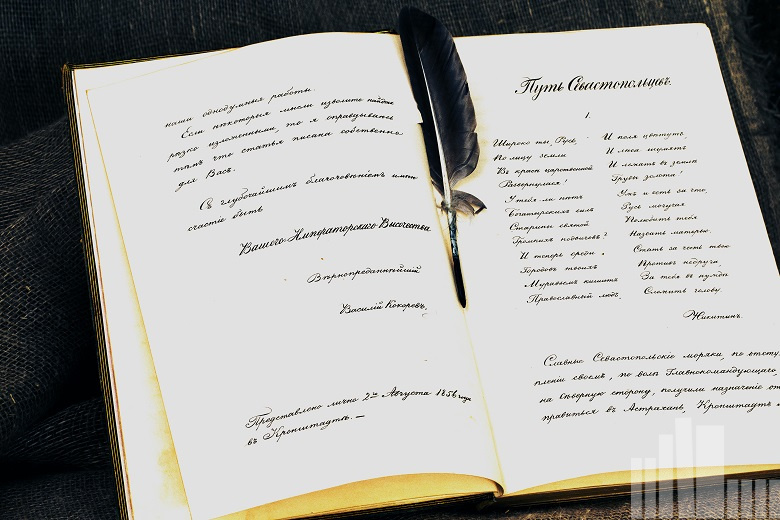 наши однодумныя работы.
Если нѣкоторыя мысли изволите найдте
рѣзко изложенными, то я оправдываюсь
тѣмъ что статья писана собственно
для Васъ.
Съ глубочайшимъ благоговѣніемъ имѣю
счастіе быть
Вашего Императорскаго Высочества
Вѣрнопреданнѣйшій
Василій Кокоревъ.
Представлено лично 2го Августа 1856 года
въ Кронштадтѣ. —
Путь Севастопольцевъ.
1.
Широко ты, Русь,
По лицу земли
Въ красѣ царственной
Развернулася!
У тебя ли нѣтъ
Богатырскихъ силъ
Старины святой
Громкихъ подвиговъ?
И теперь среди
Городовъ твоихъ
Муравьемъ кишитъ
Православный людъ.
И поля цвѣтутъ,
И лѣса шумятъ
И лежатъ въ землѣ
Груды золота!
Ужъ и есть за что,
Русь могучая
Полюбить тебя
Назвать матерью.
Стать за честь твою
Противъ недруга,
За тебя въ нужды
Сложить голову.
Никитинъ.
Славные Севастопольскіе моряки, по отсту
пленіи своемъ, по волѣ Главнокомандующаго,
на сѣверную сторону, получили назначеніе от
правиться въ Астрахань, Кронштадтъ